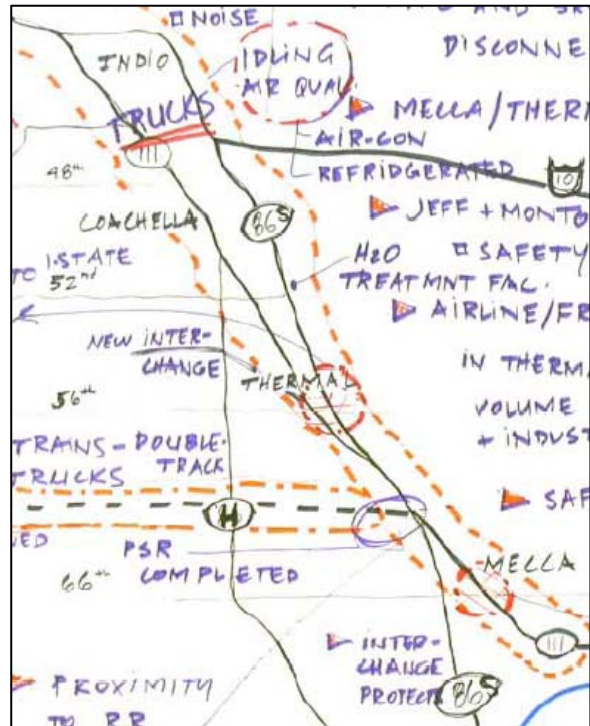 NOISE
AND
INDIO
IDLING
AIR QUAL.
DISCONNE
TRUCKS
MECCA/THERM
111
AIR-CON
REFRIDGERATED
10
48th
COACHELLA
86S
JEFF + MONTO
TO I-STATE
52nd
H2O
TREATMNT FAC.
SAFETY
AIRLINE/FR
NEW INTER-
CHANGE
THERMAL
IN THERMA
56th
VOLUME
+ INDUST
TRANS- DOUBLE-
TRUCKS TRACK
SAF
H
PSR
COMPLETED
MECCA
66th
111
INTER-
CHANGE
PROTECTS
86S
PROXIMITY
TO RR